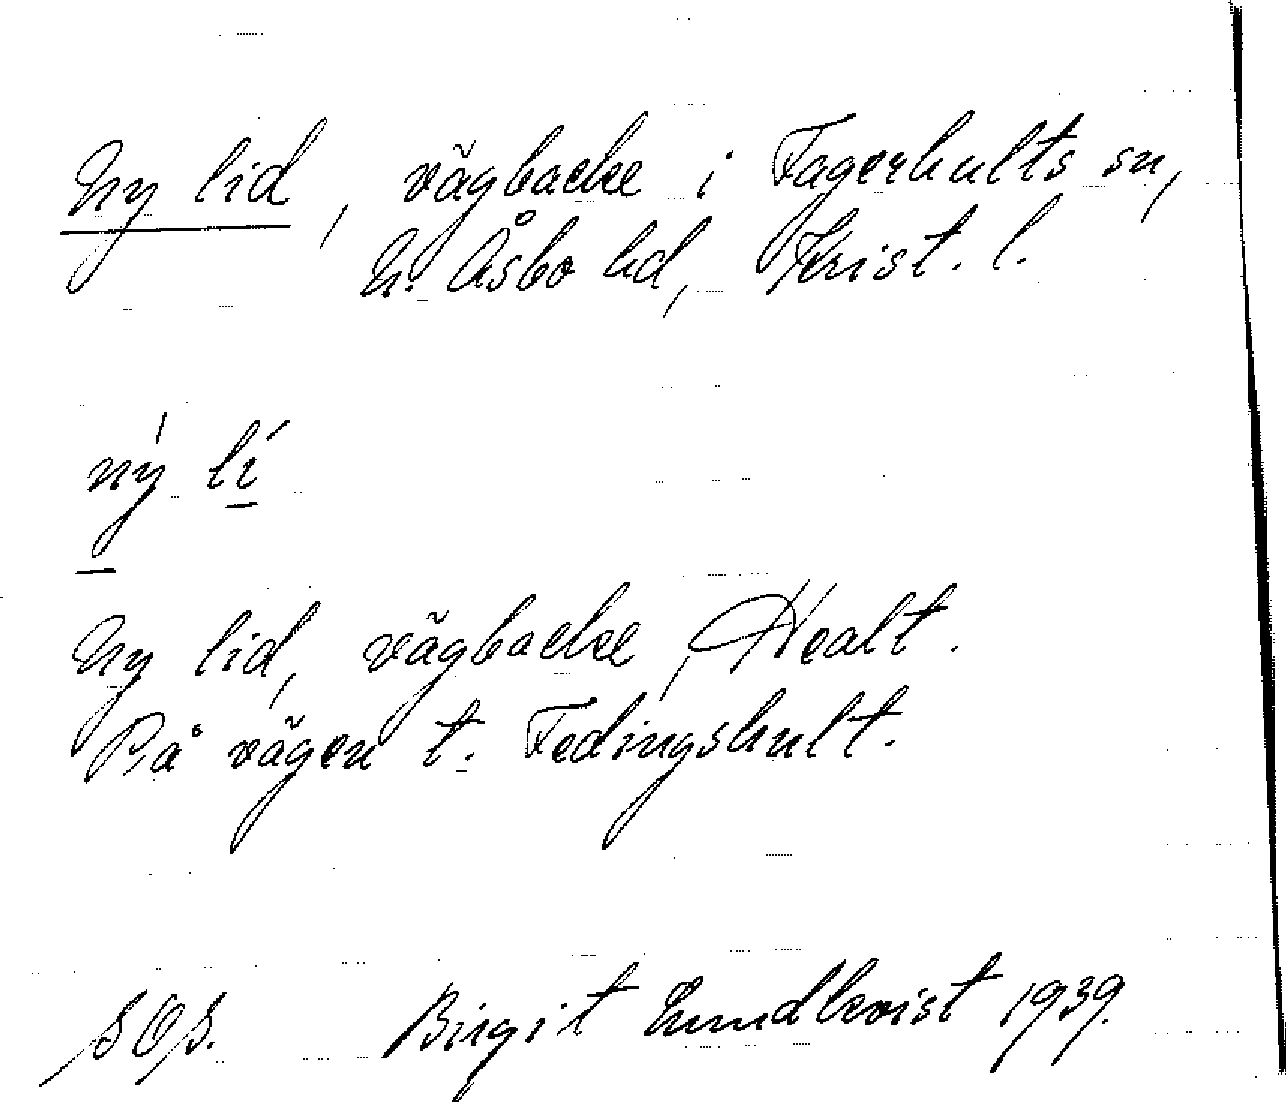 Ny lid, vägbacke i Fagerhults sn,
N. Åsbo hd, Krist. l.
ný lí
Ny lid, vägbacke, Healt.
På vägen t. Fedingshult.
SOS. Birgit Lundkvist 1939.